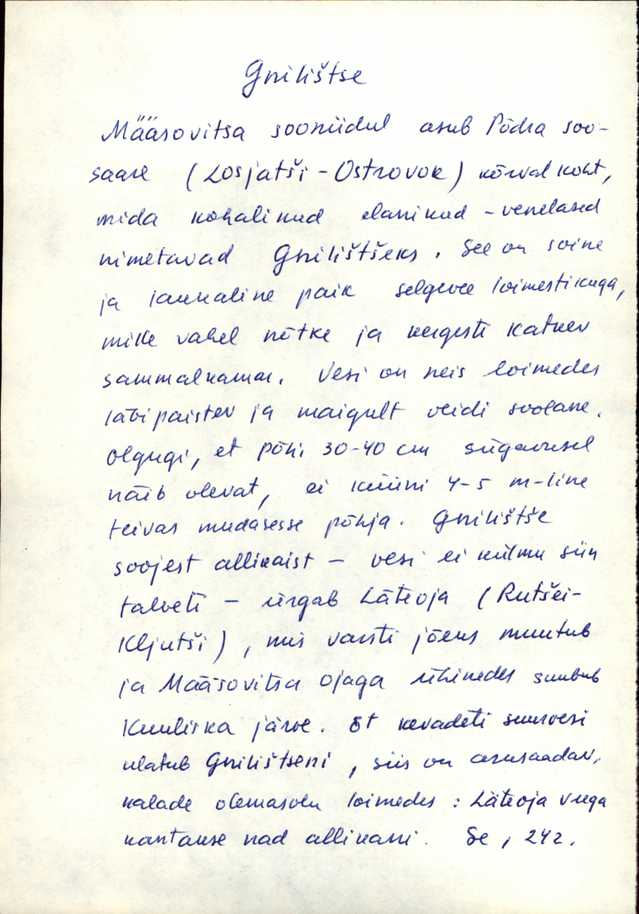 Gnilištse
Määsovitsa sooniidul asub Põdra soo-
saare (Losjatši-Ostrovok) kõrval koht,
mida kohalikud elanikud - venelased
nimetavad Gnilištšeks. See on soine
ja laukaline paik selgevee loimestikuga,
mille vahel nõtke ja kergesti katkev
sammalkamar. Vesi on neis loimedes
läbipaistev ja maigult veidi soolane.
Olgugi, et põhi 30-40 cm sügavusel
näib olevat, ei küüni 4-5 m-line
teivas mudasesse põhja. Gnilištše
soojest allikaist - vesi ei külmu siin
talveti - ürgab Läteoja (Rutšei-
Kljutši), mis varsti jõeks muutub
ja Määsovitsa ojaga ühinedes suubub
Kuuliska järve. Et kevadeti suurvesi
ulatub Gnilištseni, siis on arusaadav,
kalade olemasolu loimedes: Läteoja veega
kantakse nad allikani. Se, 242.